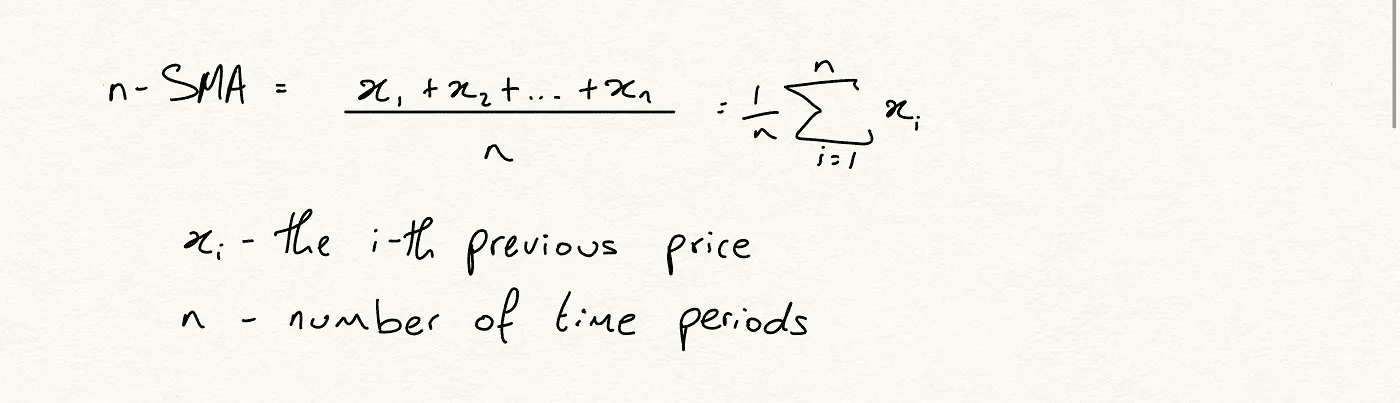 n- SMA = x₁ + x₂ + ... + xₙ / n = 1/n ∑ⁿᵢ₌₁ xᵢ
xᵢ - the i-th previous price
n - number of time periods